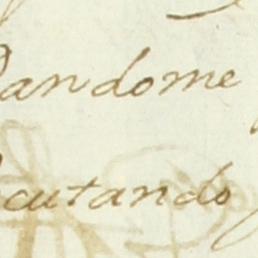 andome
cutando